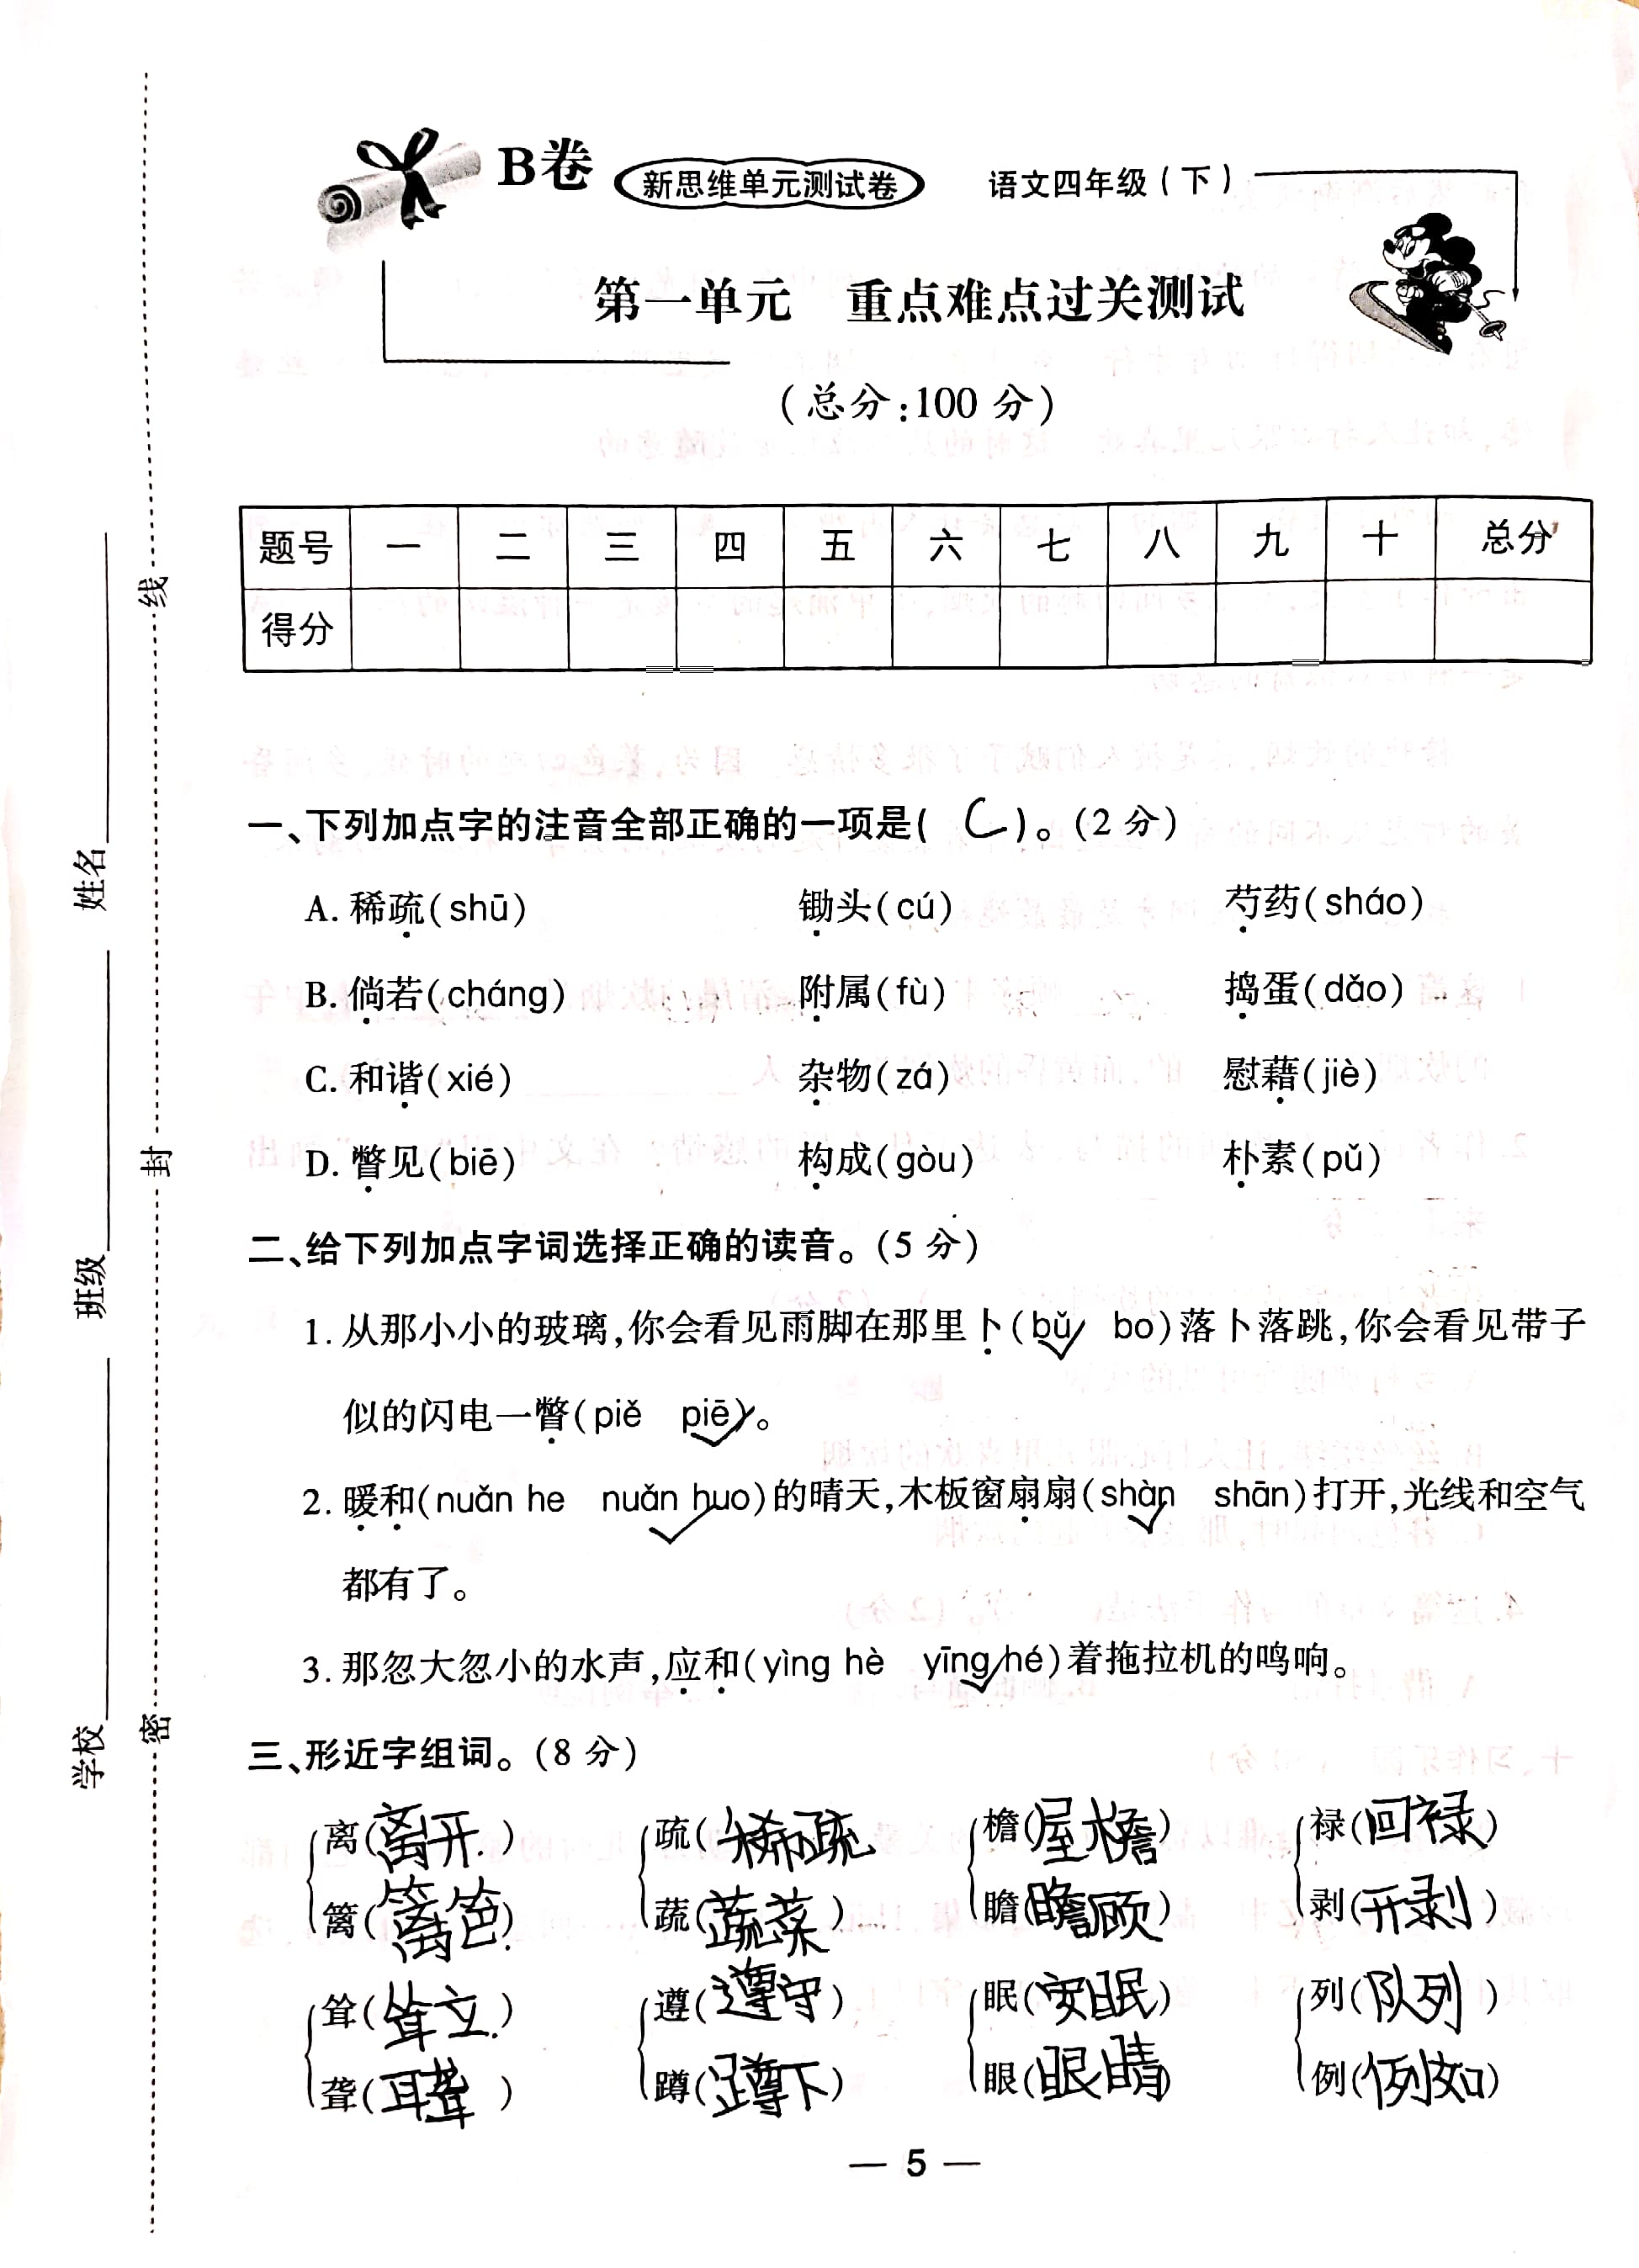 B卷 新思维单元测试卷 语文四年级(下)
第一单元 重点难点过关测试
(总分:100 分)
题号 一 二 三 四 五 六 七 八 九 十 总分
得分
一、下列加点字的注音全部正确的一项是( C )。(2 分)
A. 稀疏(shū) 锄头(cú) 芍药(sháo)
B. 倘若(cháng) 附属(fù) 捣蛋(dǎo)
C. 和谐(xié) 杂物(zá) 慰藉(jiè)
D. 瞥见(biē) 构成(gòu) 朴素(pǔ)
二、给下列加点字词选择正确的读音。(5 分)
1. 从那小小的玻璃,你会看见雨脚在那里卜(bǔ bo)落卜落跳,你会看见带子
似的闪电一瞥(piě piē)。
2. 暖和(nuǎn he nuǎn huo)的晴天,木板窗扇扇(shàn shān)打开,光线和空气
都有了。
3. 那忽大忽小的水声,应和(yìng hè yīng hé)着拖拉机的鸣响。
三、形近字组词。(8 分)
离(离开) 疏(稀疏) 檐(屋檐) 禄(回禄)
篱(篱笆) 蔬(蔬菜) 瞻(瞻顾) 剥(开剥)
耸(耸立) 遵(遵守) 眠(安眠) 列(队列)
聋(耳聋) 蹲(蹲下) 眼(眼睛) 例(例如)
— 5 —
学校 班级 姓名
密 封 线